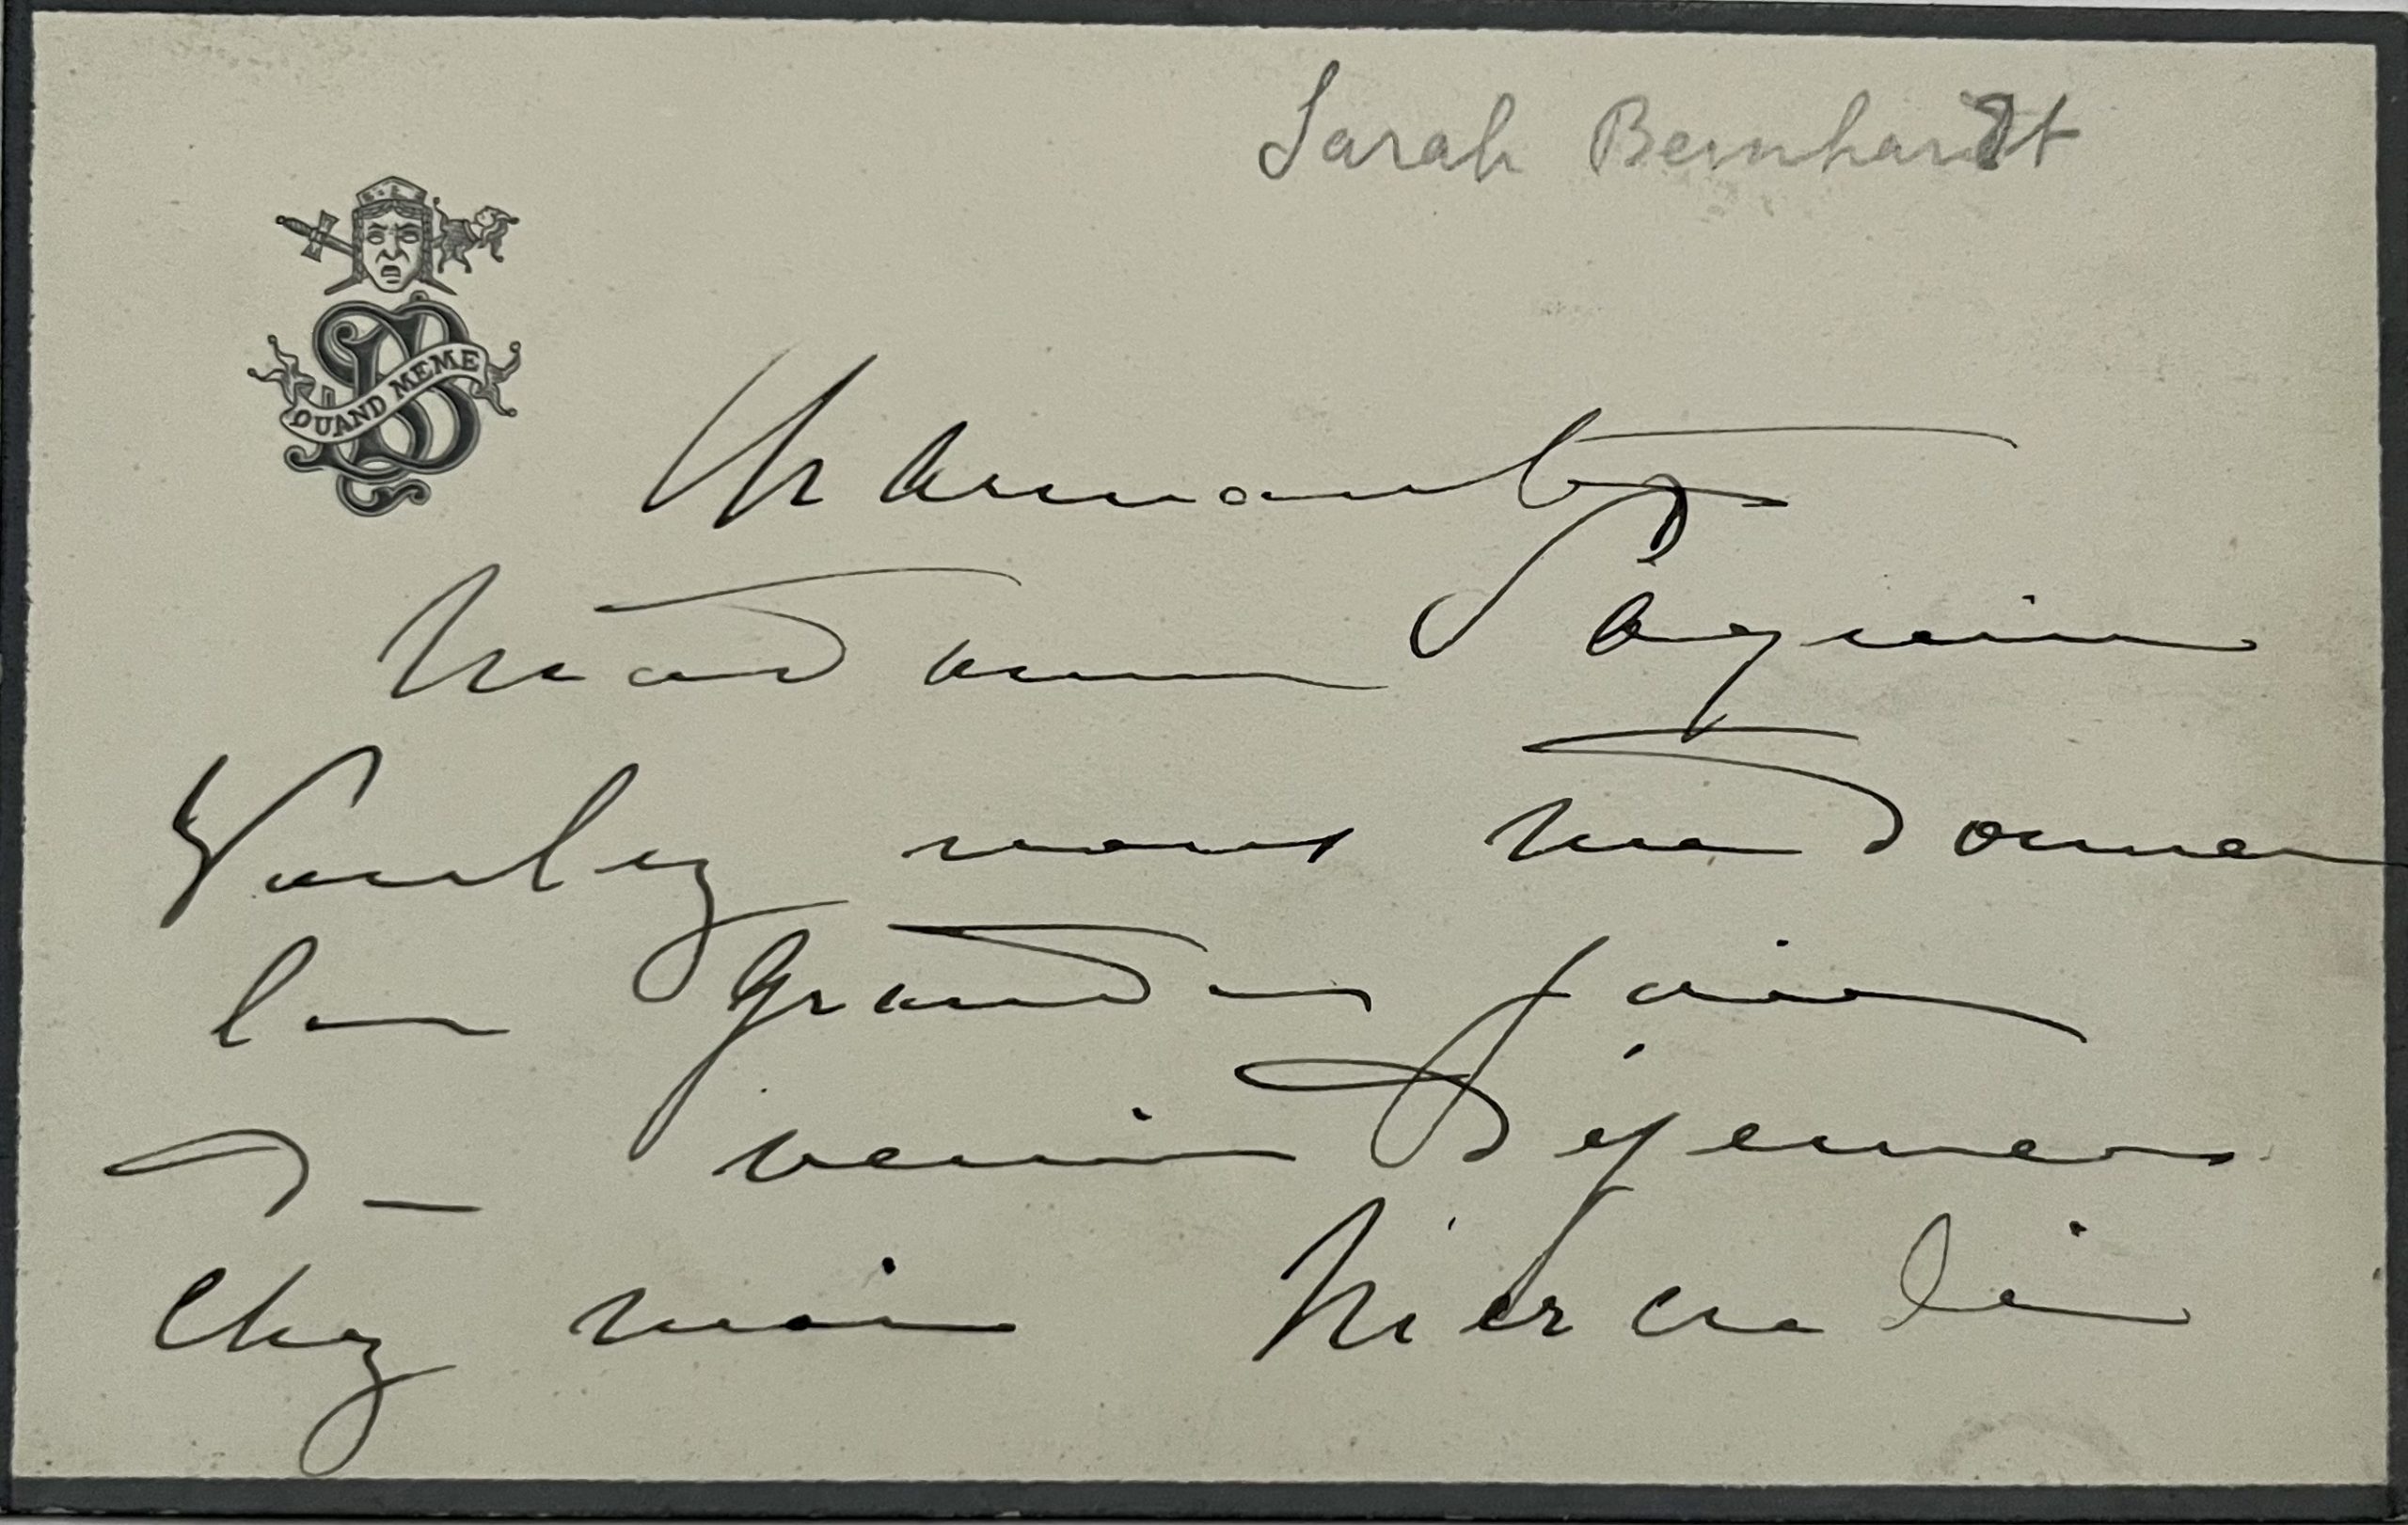 Sarah Bernhardt
QUAND MEME
Charmante
Madame Paquin
Voulez vous me donner
la grande joie
de venir déjeuner
chez moi Mercredi